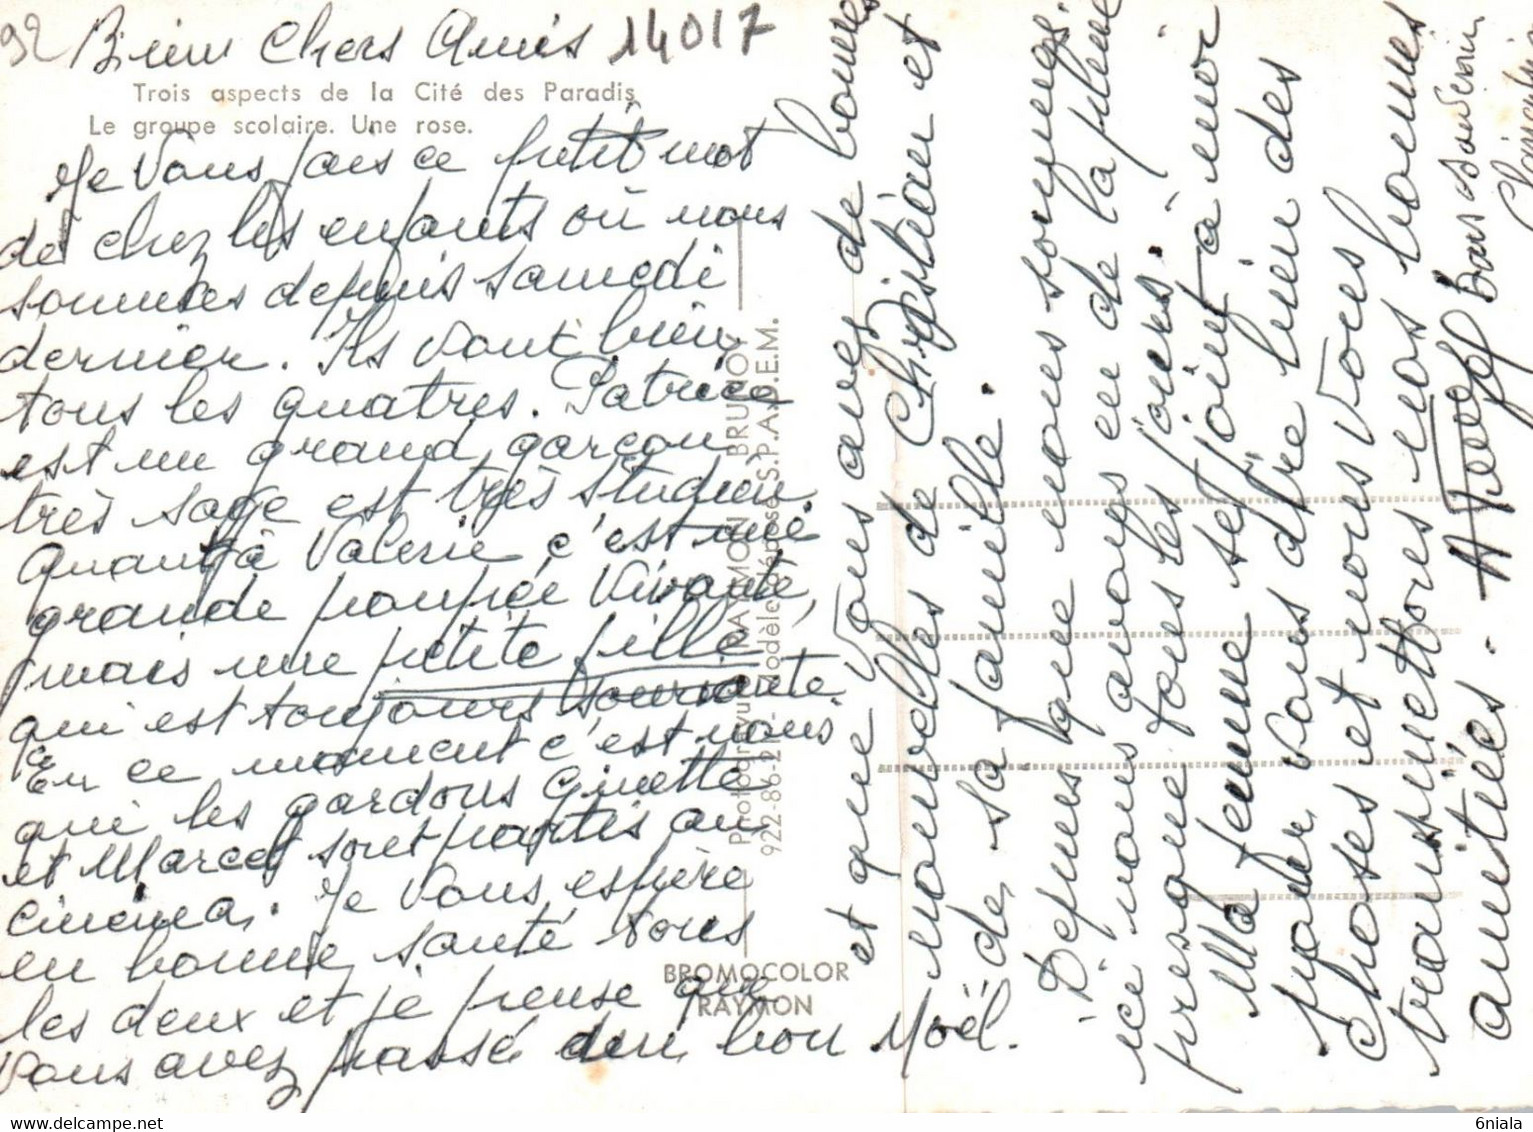 92 Bien Chers Amis 14017
Trois aspects de la Cité des Paradis
Le groupe scolaire. Une rose.
Je vous fais ce petit mot
de chez les enfants où nous
sommes depuis samedi
dernier. Ils vont bien
tous les quatres. Patrice
est un grand garçon
très sage est très studieu
Quant à Valerie c'est une
grande poupée vivante,
mais une petite fille
qui est toujours souriante
En ce moment c'est nous
qui les gardons Ginette
et Marcel sont partis au
cinéma. Je vous espère
en bonne santé tous
les deux et je pense que
vous avez passé un bon Noël.
et que vous avez de bonnes
nouvelles de Christian et
de sa famille.
Depuis que nous sommes
ici nous avons eu de la pluie
presque tous les jours.
Ma femme se joint à moi
pour vous dire bien des
choses et nous vous
transmettons nos bonnes
amitiées.
Photogravure RAYMON BRUNOY
922-86-21 - Modèle déposé S.P.A.D.E.M.
BROMOCOLOR
RAYMON
6niala